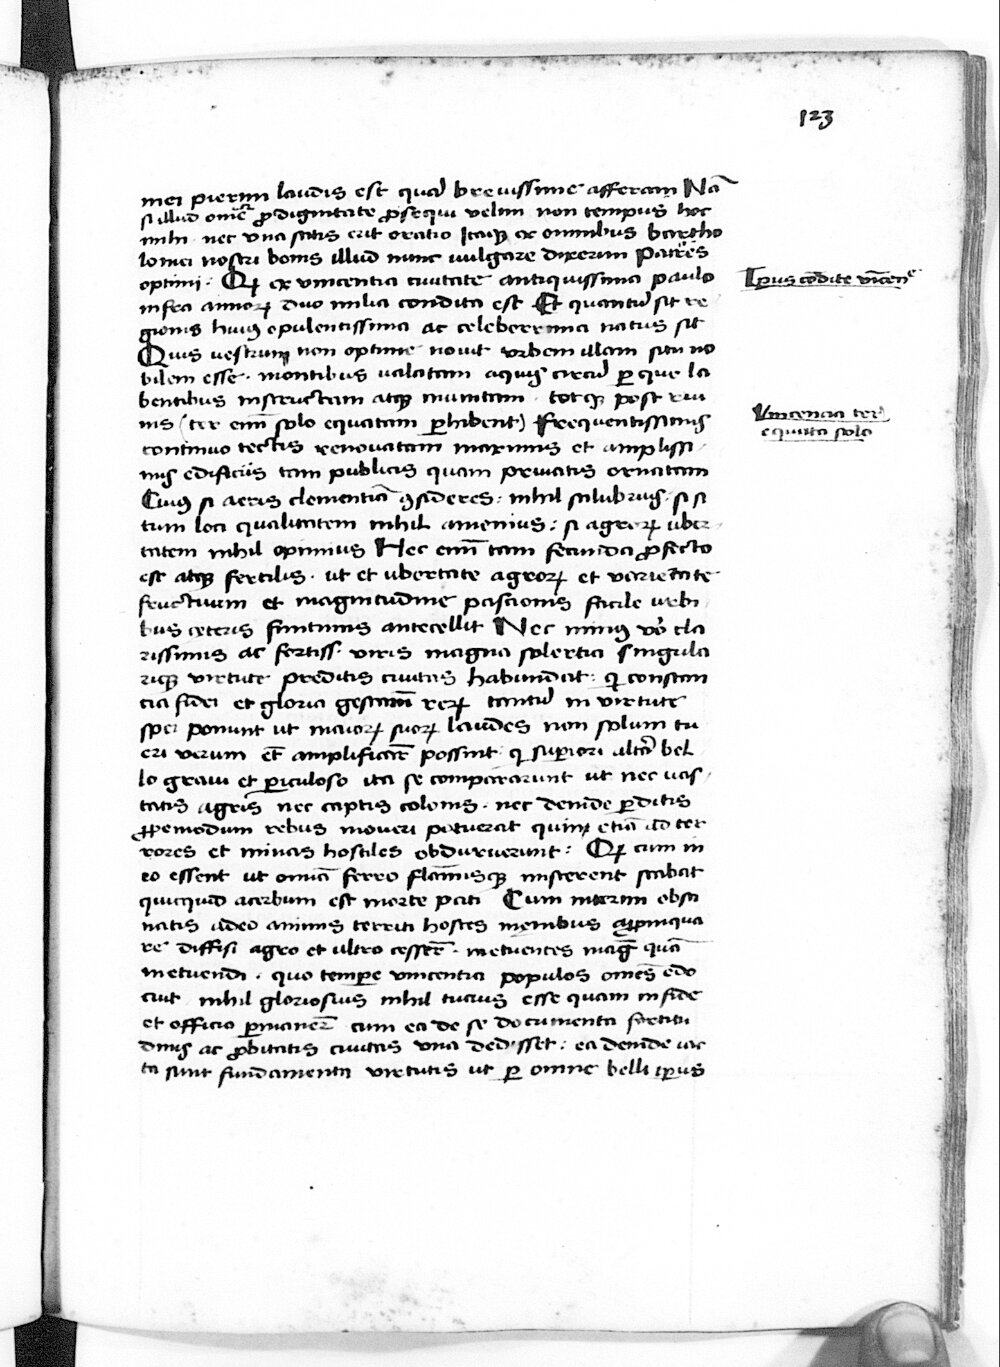 123
mei pierim laudis est quā brevissime afferam Nā
si illud om̄e ꝓ dignitate ꝓsequi velim non tempus hoc
mihi nec vna satis erit oratio Itaqꝫ ex omnibus bartho
lomei nostri bonis illud nunc vulgare dixerim Patres
optimi · Qꝫ ex vincentia civitate antiquissima paulo
infra annoꝝ duo milia condita est Et quantū sit re
gionis huiꝰ opulentissima ac celeberrima natus sit
Quis vestrum non optime novit vrbem illam situ no
bilem esse · montibus valatam aquis circū ꝑ que la
bentibus instructam atqꝫ munitam · totqꝫ post rui
nis (ter eni᷑ solo equatam ꝑhibent) Frequentissimis
continuo tectis renovatam maximis et amplissi
mis edificiis tam publicis quam privatis ornatam
Cuiꝰ si aeris clementiā ꝯsideres : nihil salubriꝰ · si si
tum loci qualitatem nihil amenius : si agroꝝ vber
tatem nihil opimius Nec eni᷑ tam fecunda ꝓfecto
est atqꝫ fertilis · ut et ubertate agroꝝ et varietate
fructuum et magnitudine pascionis facile urbi
bus ceteris finitimis antecellit Nec minꝰ vō cla
rissimis ac fortiss· viris magna solertia singula
riqꝫ virtute preditis civitas habundat : qͥ constan
tia fidei et gloria gestarū reꝝ tantū in virtute
spei ponunt ut maioꝝ suoꝝ laudes non solum tu
eri verum et̄ amplificare possint · qͥ supiori altō bel
lo gravi et ꝑiculoso ita se compararunt ut nec vas
tatis agris nec captis colonis · nec deinde ꝑditis
ꝓpemodum rebus moveri potuerat quinꝫ etiā ad ter
rores et minas hostiles obduruerunt : Qꝫ cum in
eo essent ut omīa ferro flammisqꝫ miscerent stabat
quicquid acerbum est morte pati Cum interim obsti
natis adeo animis territi hostes menibus apꝓpinqua
re diffisi agro et ultro cesser̄ · metuentes mag̅ quā
metuendi · quo tempe vincentia populos om̄es edo
cuit nihil gloriosius nihil tucius esse quam in fide
et officio ꝑmaner̄ cum ea de se documenta fortitu
dinis ac ꝓbitatis civitas vna dedisset : ea deinde iac
ta sunt fundamenta virtutis ut ꝑ omne belli ip̄ius
Tp̄us cōdite vīcen̄e
Vincencia ter
equata solo